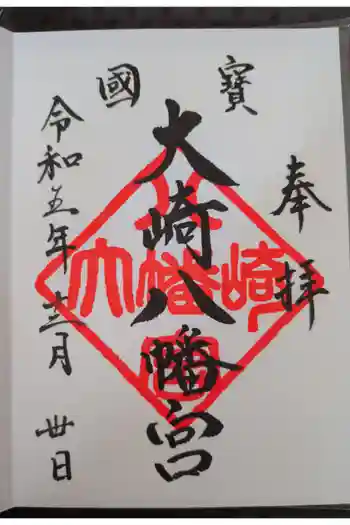 奉拝
國寶
大崎八幡宮
令和五年十二月卅日
大崎八幡宮